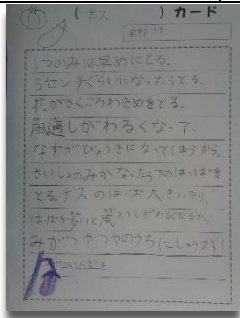 (ナス)カード
1つめのみは早めにとる。
5センチぐらいになったらとる。
花がさくころわきめをとる。
風通しがわるくなって、
なすがびょうきになってしまうから。
さいしょのみがなったら下のはっぱを
とる。ナスのはっぱ大きいから、
はっぱが多いと風とうしがわるくなるから。
みがつやつやのうちにしゅうかく!